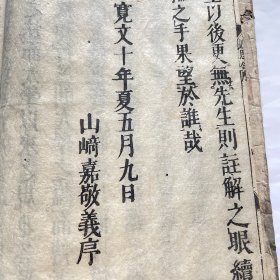 以後更無先生則註解之眼續
之手果望於誰哉
寛文十年夏五月九日
山﨑嘉敬義序